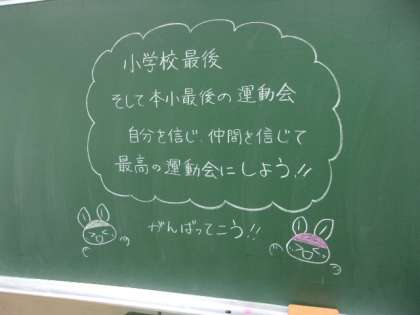 小学校最後
そして本小最後の運動会
自分を信じ、仲間を信じて
最高の運動会にしよう!!
がんばってこう!!